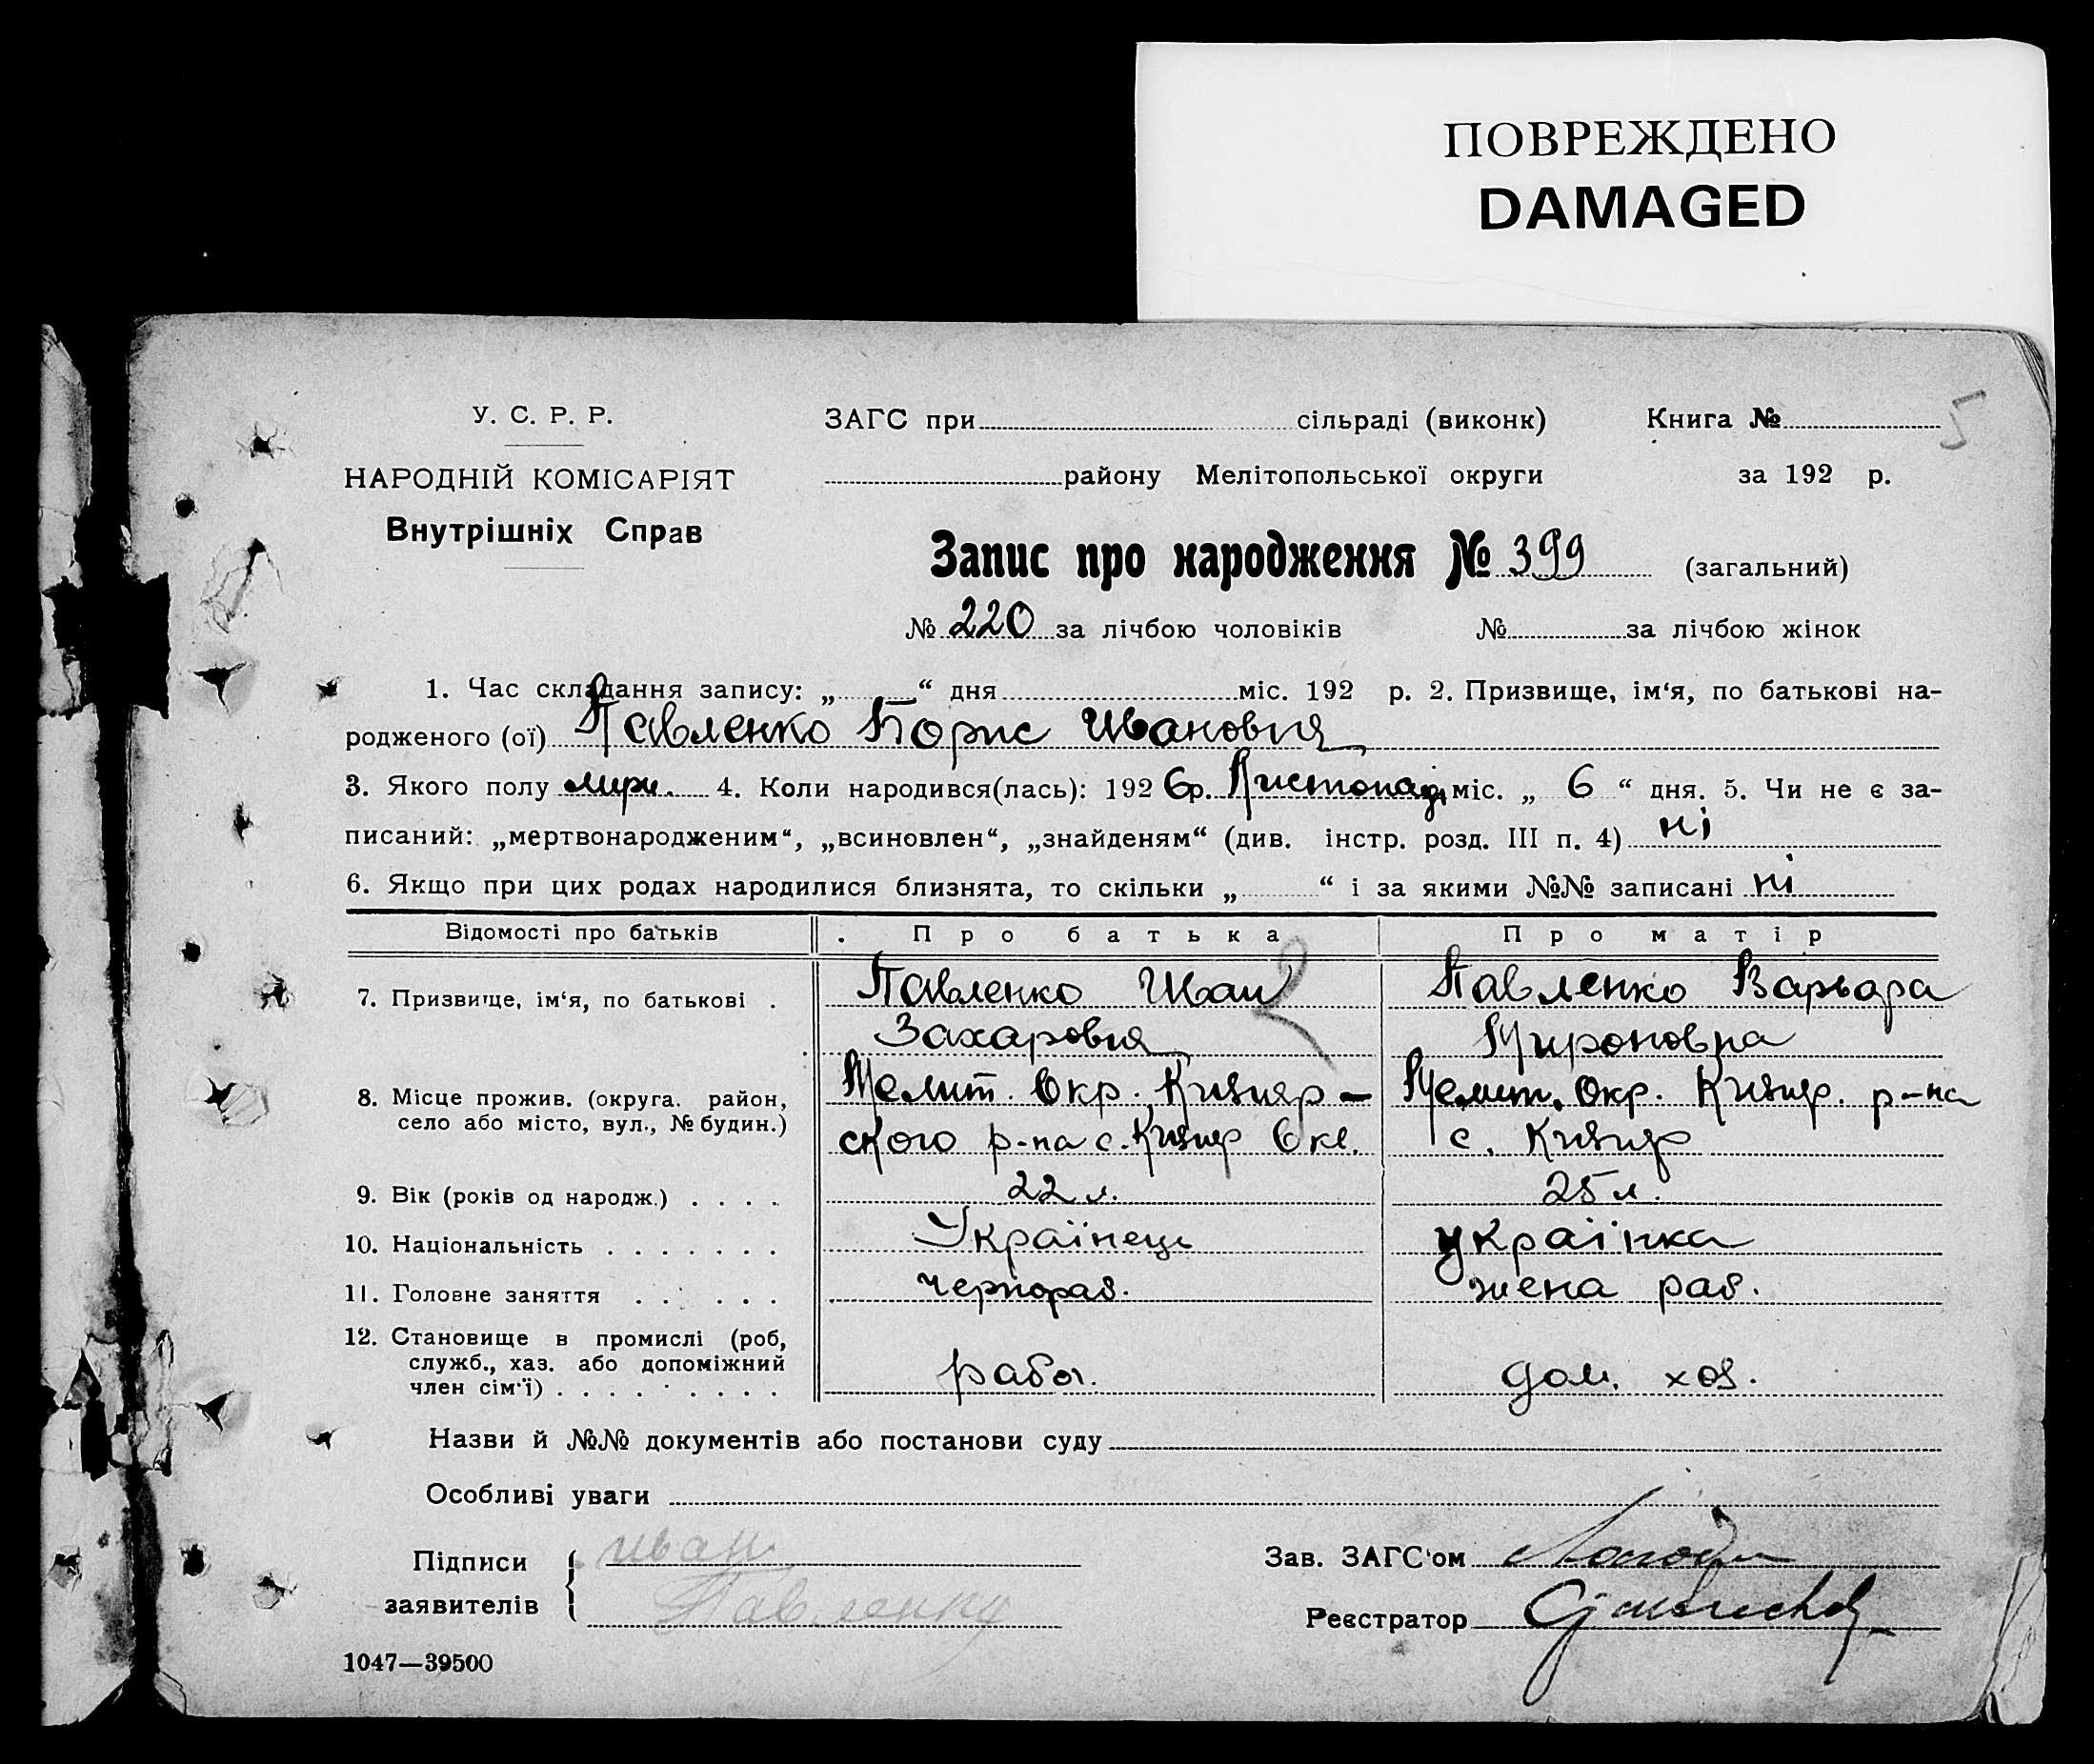 ПОВРЕЖДЕНО
DAMAGED
5
У. С. Р. Р.
НАРОДНІЙ КОМІСАРІЯТ
Внутрішніх Справ
ЗАГС при сільраді (виконк) Книга №
району Мелітопольської округи за 192 р.
Запис про народження № 399 (загальний)
№ 220 за лічбою чоловіків № за лічбою жінок
1. Час складання запису: „ “ дня міс. 192 р. 2. Призвище, ім‘я, по батькові на-
родженого (ої) Павленко Борис Иванович
3. Якого полу 4. Коли народився(лась): 192 6р. Листопад міс. „ 6 “ дня. 5. Чи не є за-
писаний: „мертвонародженим“, „всиновлен“, „знайденям“ (див. інстр. розд. III п. 4) ні
6. Якщо при цих родах народилися близнята, то скільки „ “ і за якими №№ записані ні
Відомості про батьків Про батька Про матір
7. Призвище, ім‘я, по батькові . Павленко Иван Павленко Варвара
Захарович Мироновна
8. Місце прожив. (округа. район, село або місто, вул., № будин.) Мелит. Окр. Кизияр- Мелит. Окр. Кизияр. р-на
ского р-на с. Кизияр с. Кизияр
9. Вік (років од народж.) . . . . 22 л. 25 л.
10. Національність . . . . . . . Українець українка
11. Головне заняття . . . . . . чернораб. жена раб.
12. Становище в промислі (роб,
служб., хаз. або допоміжний
член сім‘ї) . . . . . . . . . рабоч. дом. хоз.
Назви й №№ документів або постанови суду
Особливі уваги
Підписи заявителів { иван
Павленко
Зав. ЗАГС‘ом
Реєстратор
1047—39500